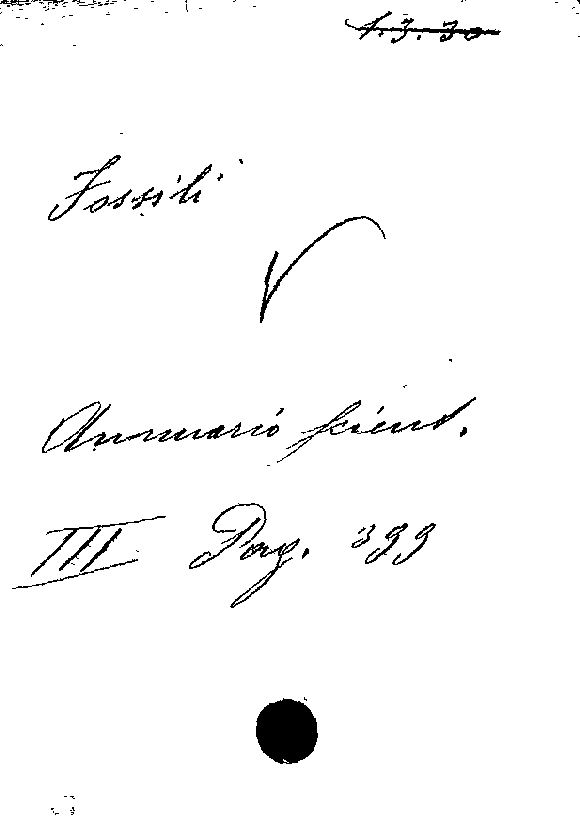 1.3.30
Fossili
Annuario scient.
III Pag. 399